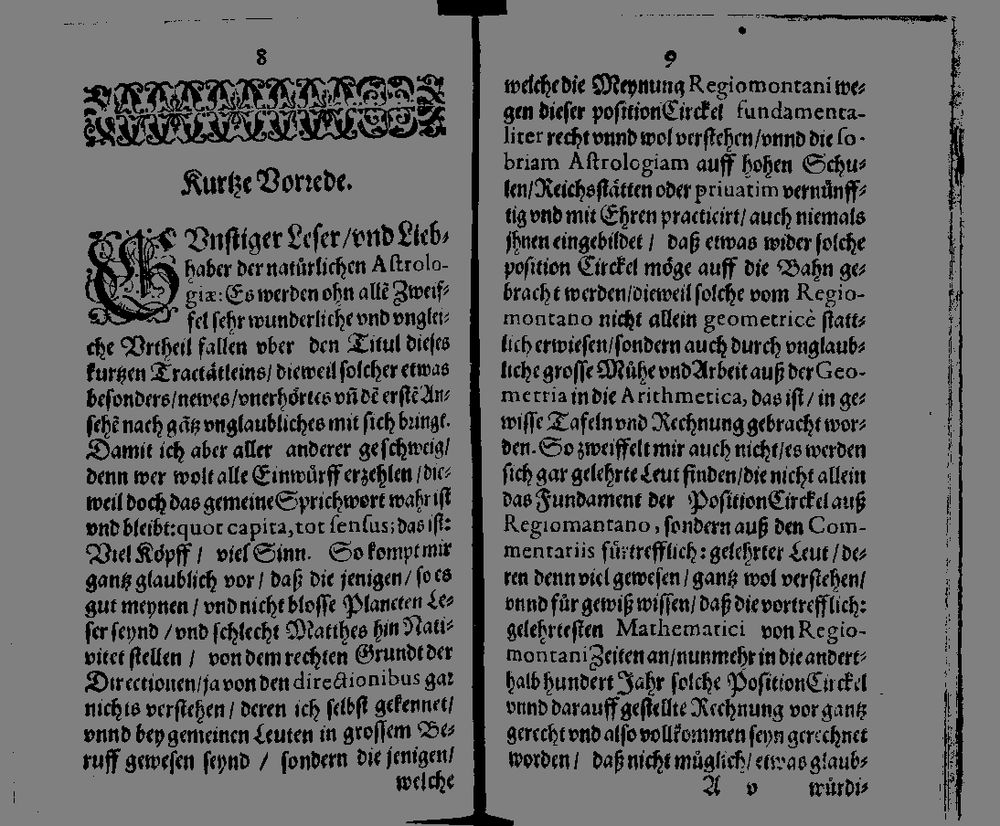 8
Kurtze Vorrede.
GVnstiger Leser/vnd Lieb-
haber der natürlichen Astrolo-
giæ: Es werden ohn allē Zweif-
fel sehr wunderliche vnd vnglei-
che Vrtheil fallen vber den Titul dieses
kurtzen Tractätleins/ dieweil solcher etwas
besonders/newes/vnerhörtes vñ dē erstē An-
sehē nach gātz vnglaubliches mit sich bringt.
Damit ich aber aller anderer geschweig/
denn wer wolt alle Einwürff erzehlen/die-
weil doch das gemeine Sprichwort wahr ist
vnd bleibt: quot capita, tot sensus; das ist:
Viel Köpff/ viel Sinn. So kompt mir
gantz glaublich vor/ daß die jenigen/ so es
gut meynen/ vnd nicht blosse Planeten Le-
ser seynd/ vnd schlecht Matthes hin Nati-
vitet stellen/ von dem rechten Grundt der
Directionen/ja von den directionibus gar
nichts verstehen/ deren ich selbst gekennet/
vnnd bey gemeinen Leuten in grossem Be-
ruff gewesen seynd/ sondern die jenigen/
welche
9
welche die Meynung Regiomontani we-
gen dieser position Circkel fundamenta-
liter recht vnnd wol verstehen/vnnd die so-
briam Astrologiam auff hohen Schu-
len/Reichsstätten oder priuatim vernünff-
tig vnd mit Ehren practicirt/ auch niemals
jhnen eingebildet/ daß etwas wider solche
position Circkel möge auff die Bahn ge-
bracht werden/dieweil solche vom Regio-
montano nicht allein geometricè statt-
lich erwiesen/sondern auch durch vnglaub-
liche grosse Mühe vnd Arbeit auß der Geo-
metria in die Arithmetica, das ist/ in ge-
wisse Tafeln vnd Rechnung gebracht wor-
den. So zweiffelt mir auch nicht/es werden
sich gar gelehrte Leut finden/die nicht allein
das Fundament der Position Circkel auß
Regiomantano, sondern auß den Com-
mentariis fürtrefflich: gelehrter Leut/ de-
ren denn viel gewesen/ gantz wol verstehen/
vnnd für gewiß wissen/ daß die vortrefflich:
gelehrtesten Mathematici von Regio-
montani Zeiten an/nunmehr in die andert-
halb hundert Jahr solche Position Circkel
vnnd darauff gestellte Rechnung vor gantz
gerecht vnd also vollkommen seyn gerechnet
worden/ daß nicht müglich/etwas glaub-
A v würdi-